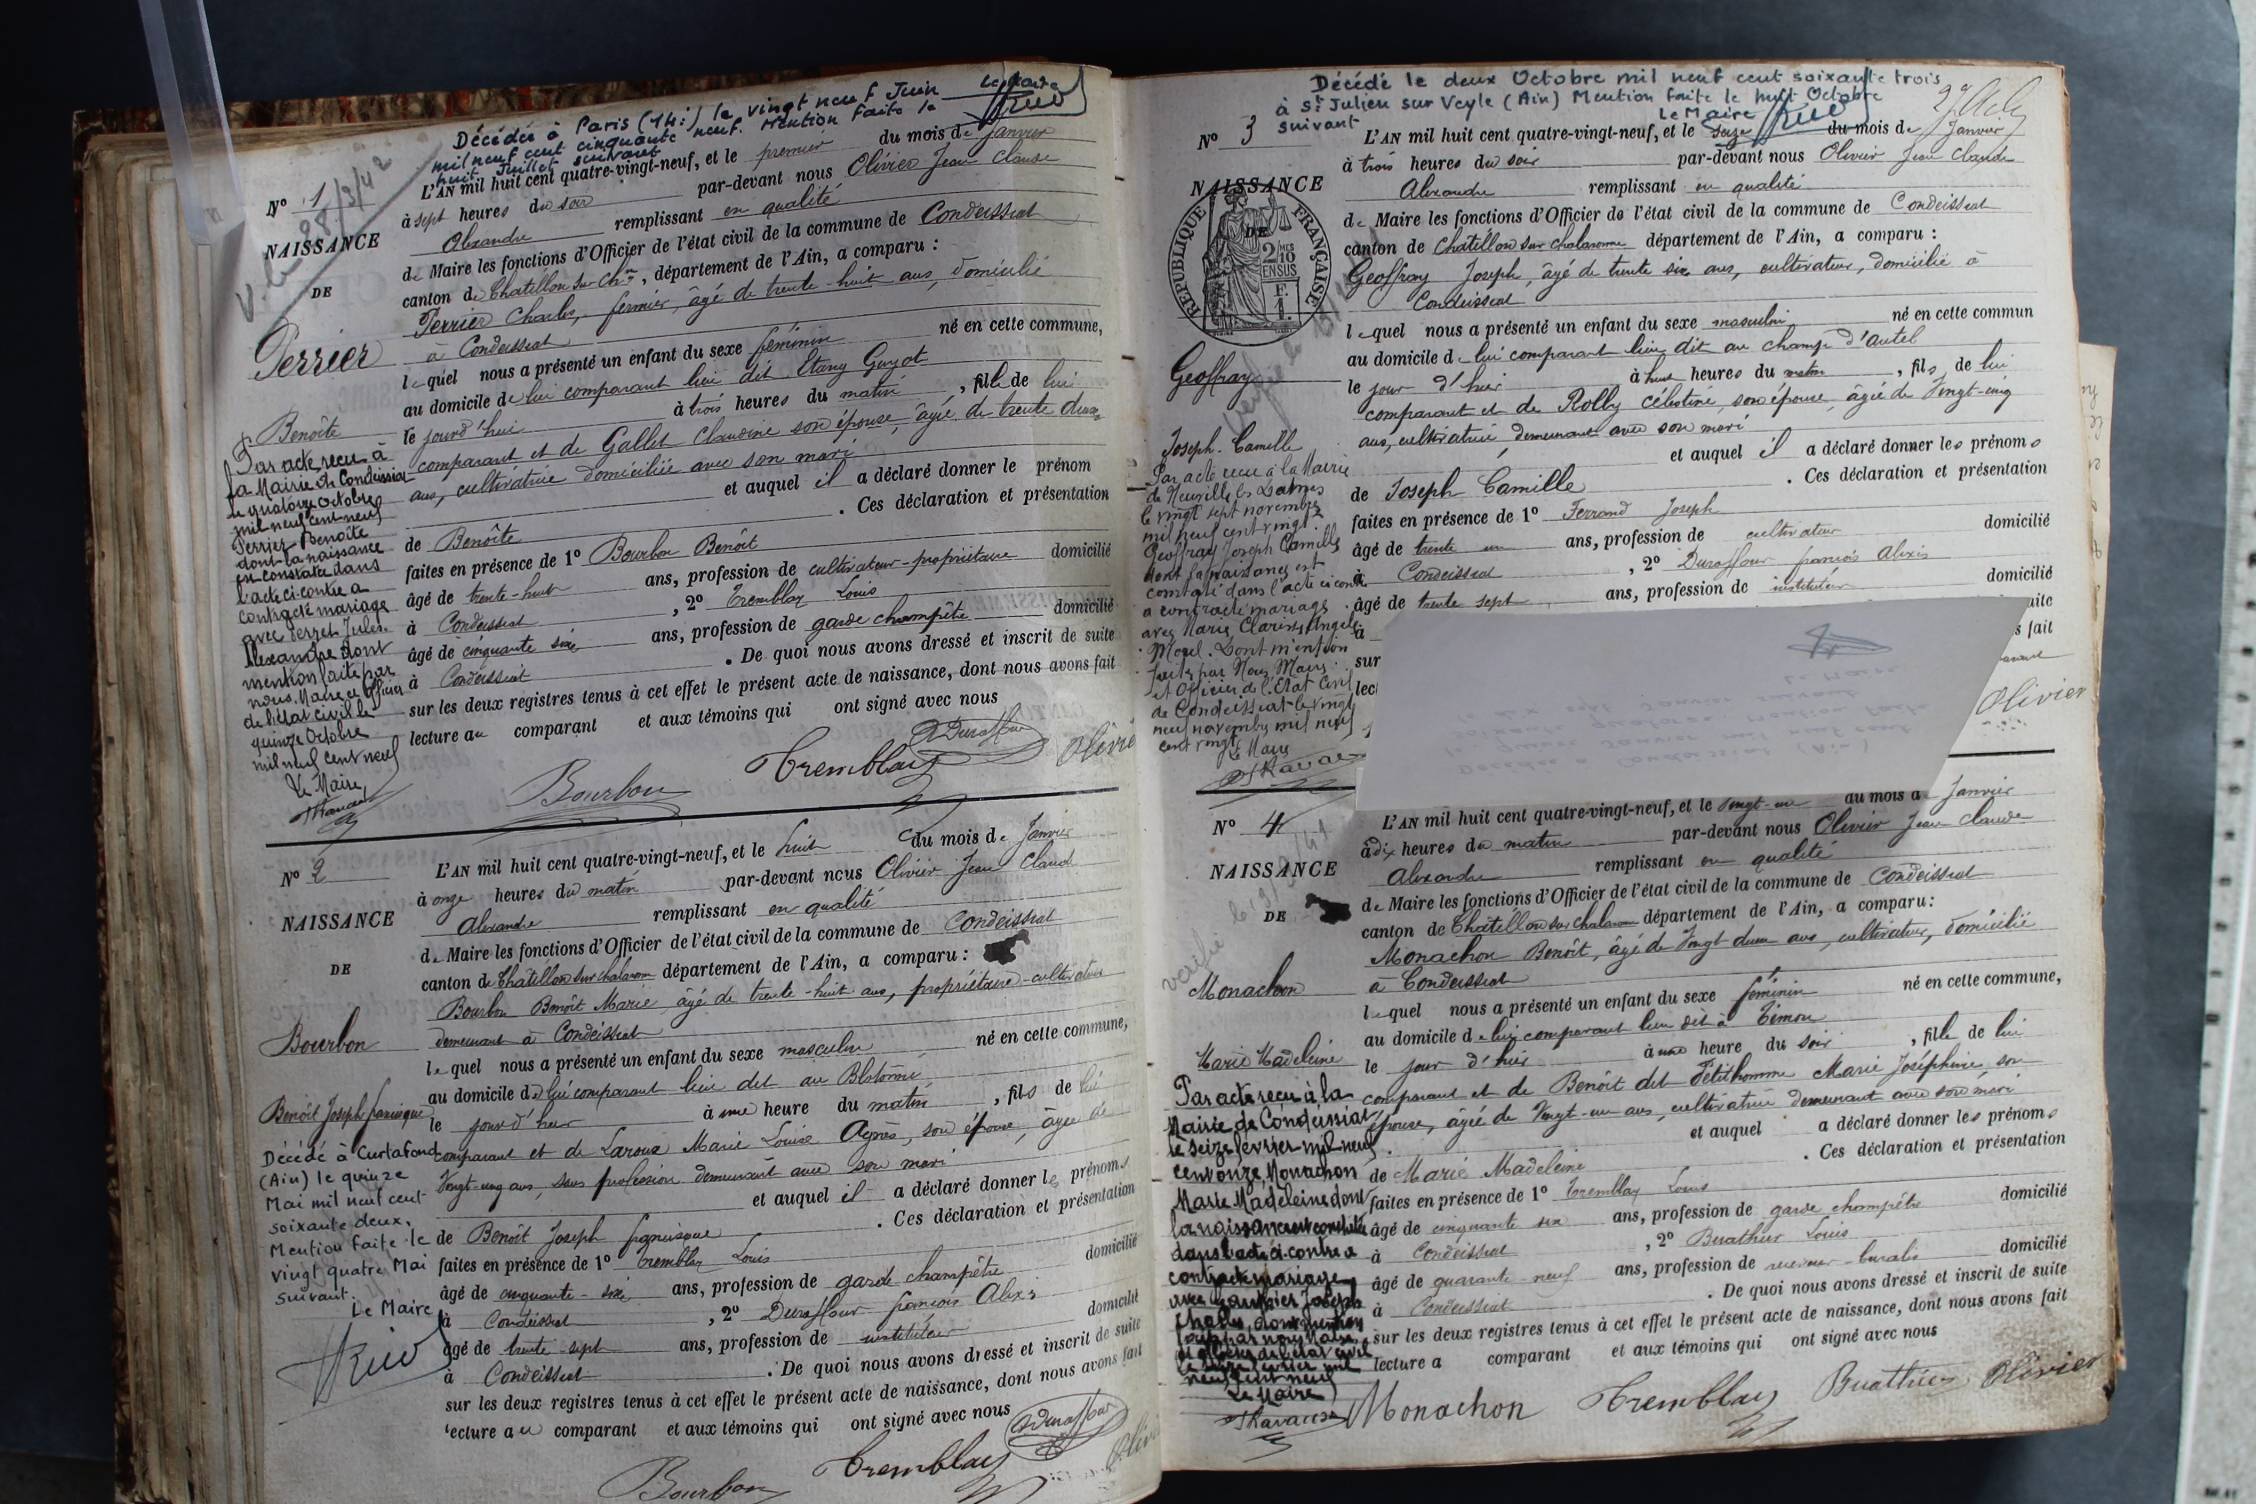 Décédée à Paris (14e) le vingt neuf Juin
mil neuf cent cinquante neuf. Mention faite le
huit Juillet suivant
Le Maire
N° 1
L'AN mil huit cent quatre-vingt-neuf, et le premier du mois de Janvier
à sept heures du soir par-devant nous Olivier Jean Claude
Alexandre remplissant en qualité
de Maire les fonctions d'Officier de l'état civil de la commune de Condeissiat
canton de Chatillon sur Chne, département de l'Ain, a comparu :
Perrier Charles, fermier, âgé de trente-huit ans, domicilié
à Condeissiat
lequel nous a présenté un enfant du sexe féminin né en cette commune,
au domicile de lui comparant lieu dit Etang Guyot
le jourd'hui à trois heures du matin, fille de lui
comparant et de Gallet Claudine son épouse, âgée de trente deux
ans, cultivatrice domiciliée avec son mari
et auquel il a déclaré donner le prénom
de Benoîte . Ces déclaration et présentation
faites en présence de 1° Bourbon Benoît
âgé de trente-huit ans, profession de cultivateur-propriétaire domicilié
à Condeissiat , 2° Tremblay Louis
âgé de cinquante six ans, profession de garde champêtre domicilié
à Condeissiat . De quoi nous avons dressé et inscrit de suite
sur les deux registres tenus à cet effet le présent acte de naissance, dont nous avons fait
lecture au comparant et aux témoins qui ont signé avec nous
Bourbon Tremblay Duraffour Olivier
NAISSANCE
DE
V. le 28/3/42
Perrier
Benoîte
Par acte reçu à
la Mairie de Condeissiat
le quatorze Octobre
mil neuf cent neuf
Perrier Benoîte
dont la naissance
est constatée dans
l'acte ci-contre a
contracté mariage
avec Perret Julien
Alexandre dont
mention faite par
nous, Maire et Officier
de l'état civil le
quinze Octobre
mil neuf cent neuf
Le Maire
N° 2
L'AN mil huit cent quatre-vingt-neuf, et le huit du mois de Janvier
à onze heures du matin par-devant nous Olivier Jean Claude
Alexandre remplissant en qualité
de Maire les fonctions d'Officier de l'état civil de la commune de Condeissiat
canton de Chatillon sur chalaronne département de l'Ain, a comparu :
Bourbon Benoît Marie, âgé de trente-huit ans, propriétaire-cultivateur
demeurant à Condeissiat
lequel nous a présenté un enfant du sexe masculin né en cette commune,
au domicile de lui comparant lieu dit au
le jour d'hier à une heure du matin, fils de lui
comparant et de Laroux Marie Louise Agnès, son épouse, âgée de
vingt-cinq ans, sans profession demeurant avec son mari
et auquel il a déclaré donner les prénoms
de Benoît Joseph francisque . Ces déclaration et présentation
faites en présence de 1° Tremblay Louis
âgé de cinquante-six ans, profession de garde champêtre domicilié
à Condeissiat , 2° Duraffour françois Alexis
âgé de trente-sept ans, profession de instituteur domicilié
à Condeissiat . De quoi nous avons dressé et inscrit de suite
sur les deux registres tenus à cet effet le présent acte de naissance, dont nous avons fait
lecture au comparant et aux témoins qui ont signé avec nous
Bourbon Tremblay Duraffour Olivier
NAISSANCE
DE
Bourbon
Benoît Joseph francisque
Décédé à Curtafond
(Ain) le quinze
Mai mil neuf cent
soixante deux.
Mention faite le
vingt quatre Mai
suivant.
Le Maire
Décédé le deux Octobre mil neuf cent soixante trois
à St Julien sur Veyle (Ain) Mention faite le huit Octobre
suivant
Le Maire
N° 3
L'AN mil huit cent quatre-vingt-neuf, et le seize du mois de Janvier
à trois heures du soir par-devant nous Olivier Jean Claude
Alexandre remplissant en qualité
de Maire les fonctions d'Officier de l'état civil de la commune de Condeissiat
canton de Chatillon sur chalaronne département de l'Ain, a comparu :
Geoffray Joseph, âgé de trente six ans, cultivateur, domicilié à
Condeissiat
lequel nous a présenté un enfant du sexe masculin né en cette commun
au domicile de lui comparant lieu dit au champ d'autel
le jour d'hier à huit heures du matin, fils de lui
comparant et de Rolly Célestine, son épouse, âgée de Vingt-cinq
ans, cultivatrice, demeurant avec son mari
et auquel il a déclaré donner les prénoms
de Joseph Camille . Ces déclaration et présentation
faites en présence de 1° Ferrand Joseph
âgé de trente un ans, profession de cultivateur domicilié
à Condeissiat , 2° Duraffour françois Alexis
âgé de trente sept ans, profession de instituteur domicilié
à
sur
lect
uite
s fait
Olivier
NAISSANCE
DE
REPUBLIQUE FRANÇAISE
2/10 EN SUS
Geoffray
Joseph-Camille
Par acte reçu à la Mairie
de Neuville les Dames
le vingt sept novembre
mil neuf cent vingt
Geoffray Joseph Camille
dont la naissance est
constaté dans l'acte ci contre
a contracté mariage
avec Marie Clarisse Angèle
Morel. Dont mention
faite par Nous Maire
et Officier de l'Etat Civil
de Condeissiat le vingt
neuf novembre mil neuf
cent vingt
Le Maire
N° 4
L'AN mil huit cent quatre-vingt-neuf, et le Vingt-un du mois de Janvier
à dix heures du matin par-devant nous Olivier Jean Claude
Alexandre remplissant en qualité
de Maire les fonctions d'Officier de l'état civil de la commune de Condeissiat
canton de Chatillon sur chalaronne département de l'Ain, a comparu :
Monachon Benoît, âgé de Vingt deux ans, cultivateur, domicilié
à Condeissiat
lequel nous a présenté un enfant du sexe féminin né en cette commune,
au domicile de lui comparant lieu dit à Timon
le jour d'hier à une heure du soir, fille de lui
comparant et de Benoît dit Petithomme Marie Joséphine, son
épouse, âgée de Vingt-un ans, cultivatrice demeurant avec son mari
et auquel a déclaré donner les prénoms
de Marie Madeleine . Ces déclaration et présentation
faites en présence de 1° Tremblay Louis
âgé de cinquante six ans, profession de garde champêtre domicilié
à Condeissiat , 2° Buathier Louis
âgé de quarante-neuf ans, profession de receveur-buraliste domicilié
à Condeissiat . De quoi nous avons dressé et inscrit de suite
sur les deux registres tenus à cet effet le présent acte de naissance, dont nous avons fait
lecture a comparant et aux témoins qui ont signé avec nous
Monachon Tremblay Buathier Olivier
NAISSANCE
DE
Monachon
Marie Madeleine
Par acte reçu à la
Mairie de Condeissiat
le seize février mil neuf
cent onze, Monachon
Marie Madeleine dont
la naissance est constatée
dans l'acte ci-contre a
contracté mariage
avec Gauthier Joseph
Charles, dont mention
faite par nous Maire
et officier de l'état civil
le seize février mil
neuf cent
Le Maire